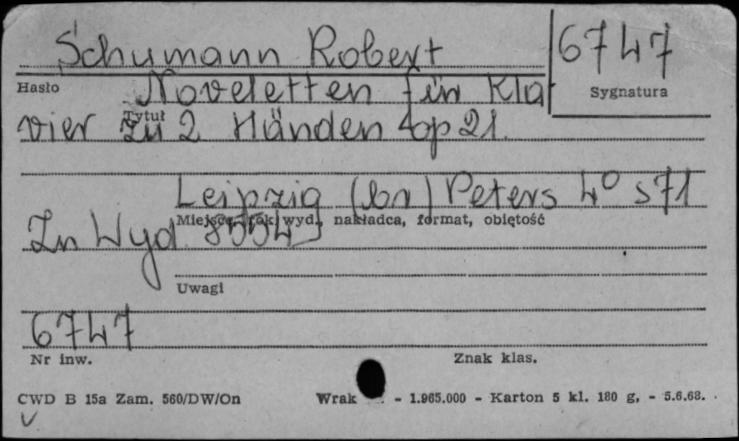 Schumann Robert
6747
Hasło
Sygnatura
Noveletten für Kla
vier zu 2 Händen op 21.
Tytuł
Leipzig (br) Peters 4° s 71
Miejsce, rok wyd., nakładca, format, objętość
Zn Wyd
Uwagi
6747
Nr inw.
Znak klas.
CWD B 15a Zam. 560/DW/On
Wrak - 1.965.000 - Karton 5 kl. 180 g, - 5.6.68.